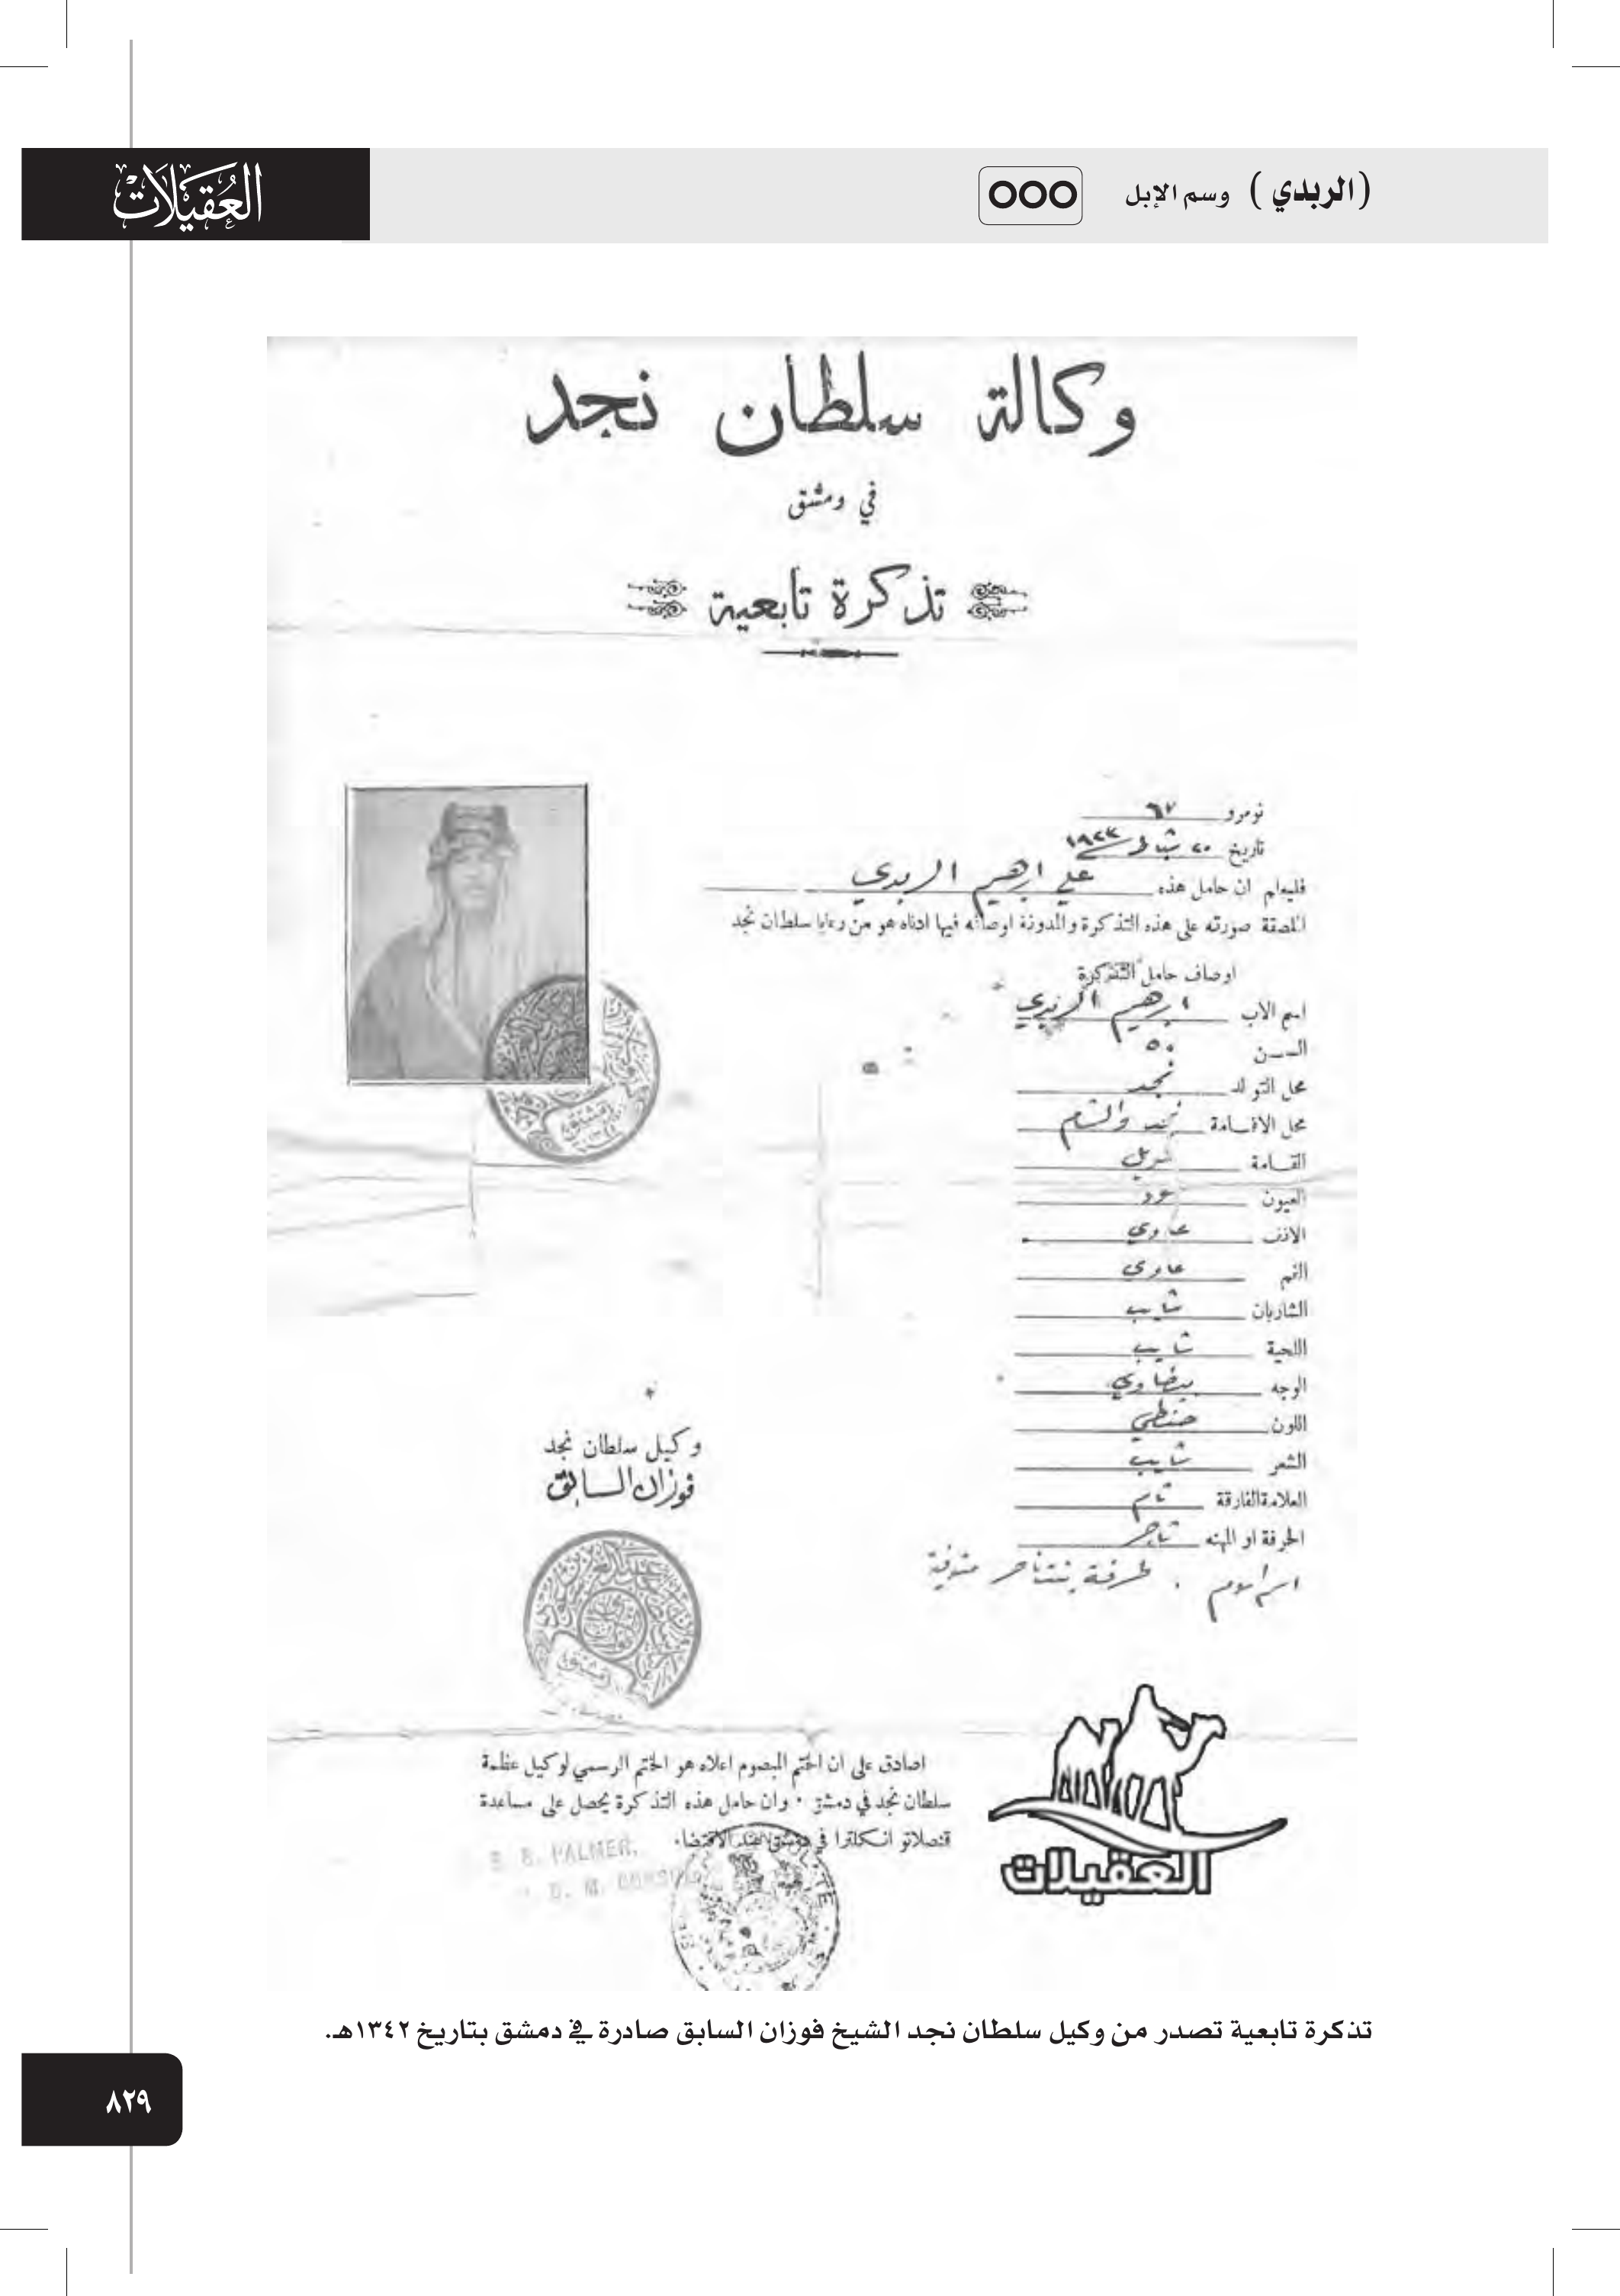 (الربدي) وسم الإبل
العُقَيلَات
وكالة سلطان نجد
في دمشق
تذكرة تابعية
نومرو ٦٧
تاريخ ٢٠ شباط ١٩٢٣
فليعلم ان حامل هذه علي ابرهيم الربدي
الملصقة صورته على هذه التذكرة والمدونة اوصافه فيها ادناه هو من رعايا سلطان نجد
اوصاف حامل التذكرة
اسم الاب ابرهيم الربدي
السن ٥٠
محل التولد نجد
محل الاقامة نجد والشام
القامة
العيون
الانف عادي
الفم عادي
الشاربان شايب
اللحية شايب
الوجه بيضاوي
اللون حنطي
الشعر شايب
العلامة الفارقة
الحرفة او المهنه تاجر
وكيل سلطان نجد
فوزان السابق
دمشق
اصادق على ان الختم المبصوم اعلاه هو الختم الرسمي لوكيل عظمة
سلطان نجد في دمشق ٠ وان حامل هذه التذكرة يحصل على مساعدة
قنصلاتو انكلترا في دمشق عند الاقتضاء.
PALMER.
العقيلات
تذكرة تابعية تصدر من وكيل سلطان نجد الشيخ فوزان السابق صادرة في دمشق بتاريخ ١٣٤٢هـ.
٨٢٩